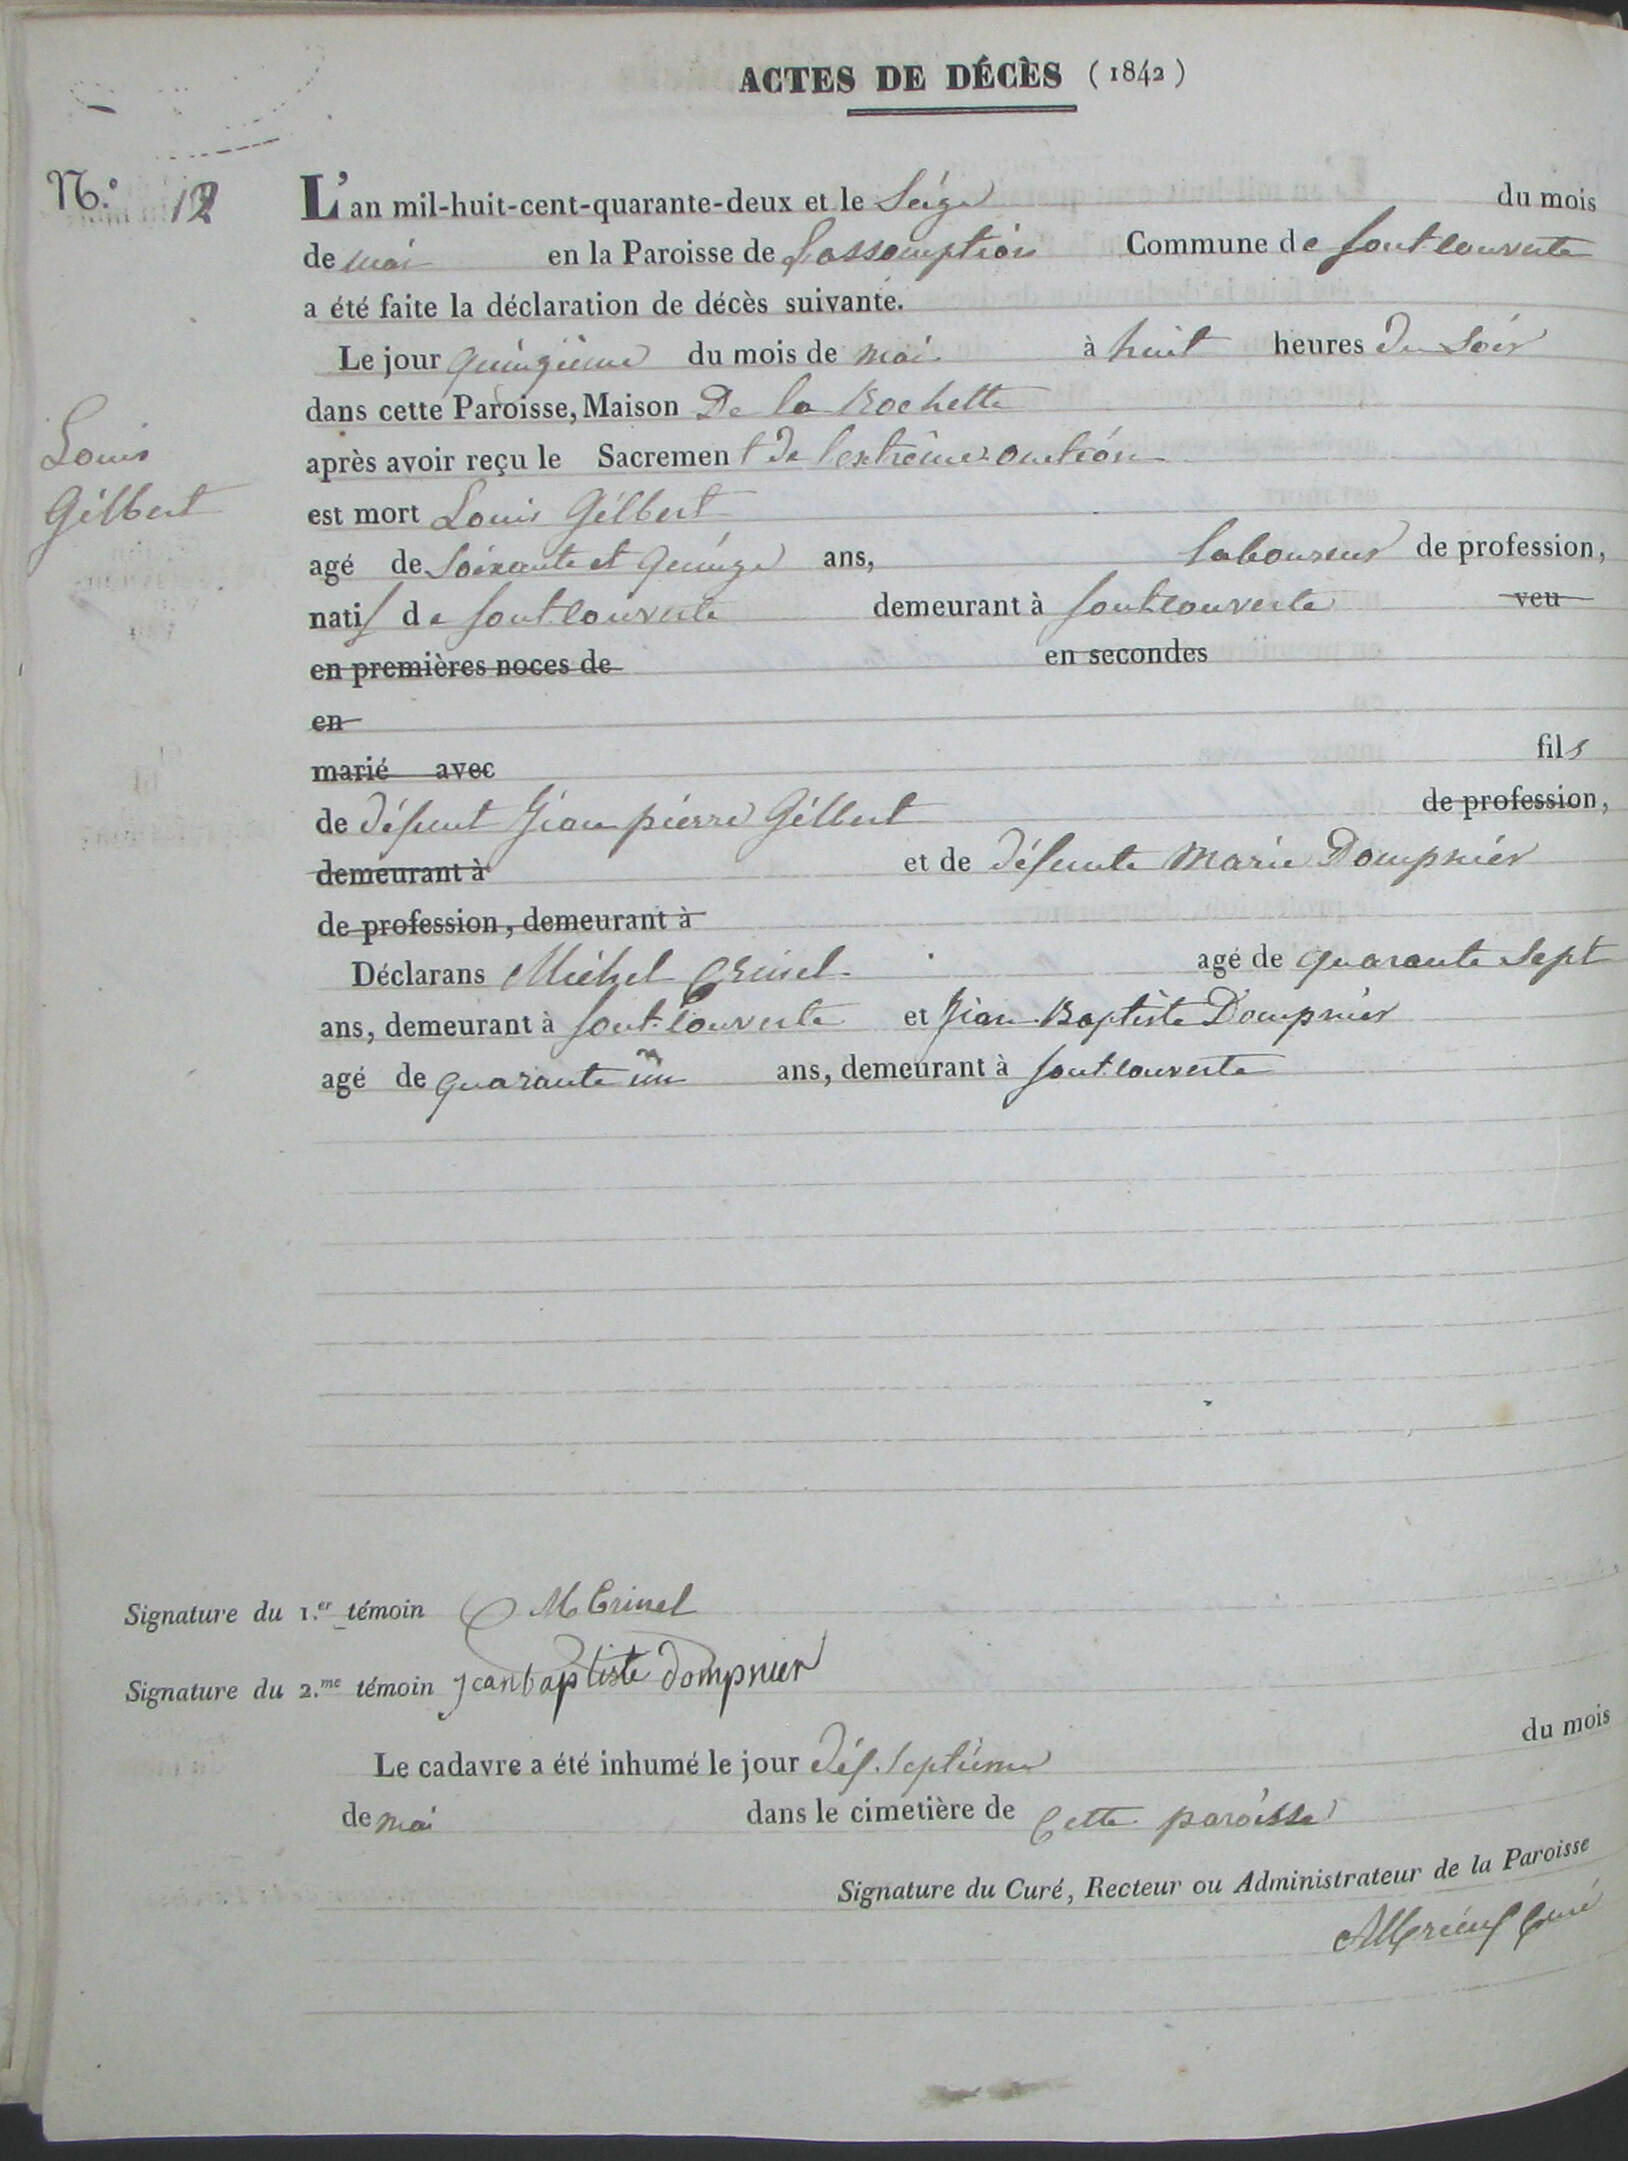 ACTES DE DÉCÈS (1842)
N.° 12
L'an mil-huit-cent-quarante-deux et le Seize du mois
de mai en la Paroisse de L'assomption Commune de fontcouverte
a été faite la déclaration de décès suivante.
Le jour quinzieme du mois de mai à huit heures du Soir
dans cette Paroisse, Maison De la Rochette
après avoir reçu le Sacrement de l'extrême-onction
Louis
Gilbert
est mort Louis Gilbert
agé de Soixante et quinze ans, laboureur de profession,
natif de fontcouverte demeurant à fontcouverte veu
en premières noces de en secondes
en
marié avec fils
de défunt Jean pierre Gilbert de profession,
demeurant à et de défunte Marie Dompnier
de profession, demeurant à
Déclarans Michel Crinel agé de quarante Sept
ans, demeurant à fontcouverte et Jean Baptiste Dompnier
agé de quarante un ans, demeurant à fontcouverte
Signature du 1.er témoin M Crinel
Signature du 2.me témoin jean baptiste dompnier
Le cadavre a été inhumé le jour dix-Septieme du mois
de mai dans le cimetière de Cette paroisse
Signature du Curé, Recteur ou Administrateur de la Paroisse
Curé